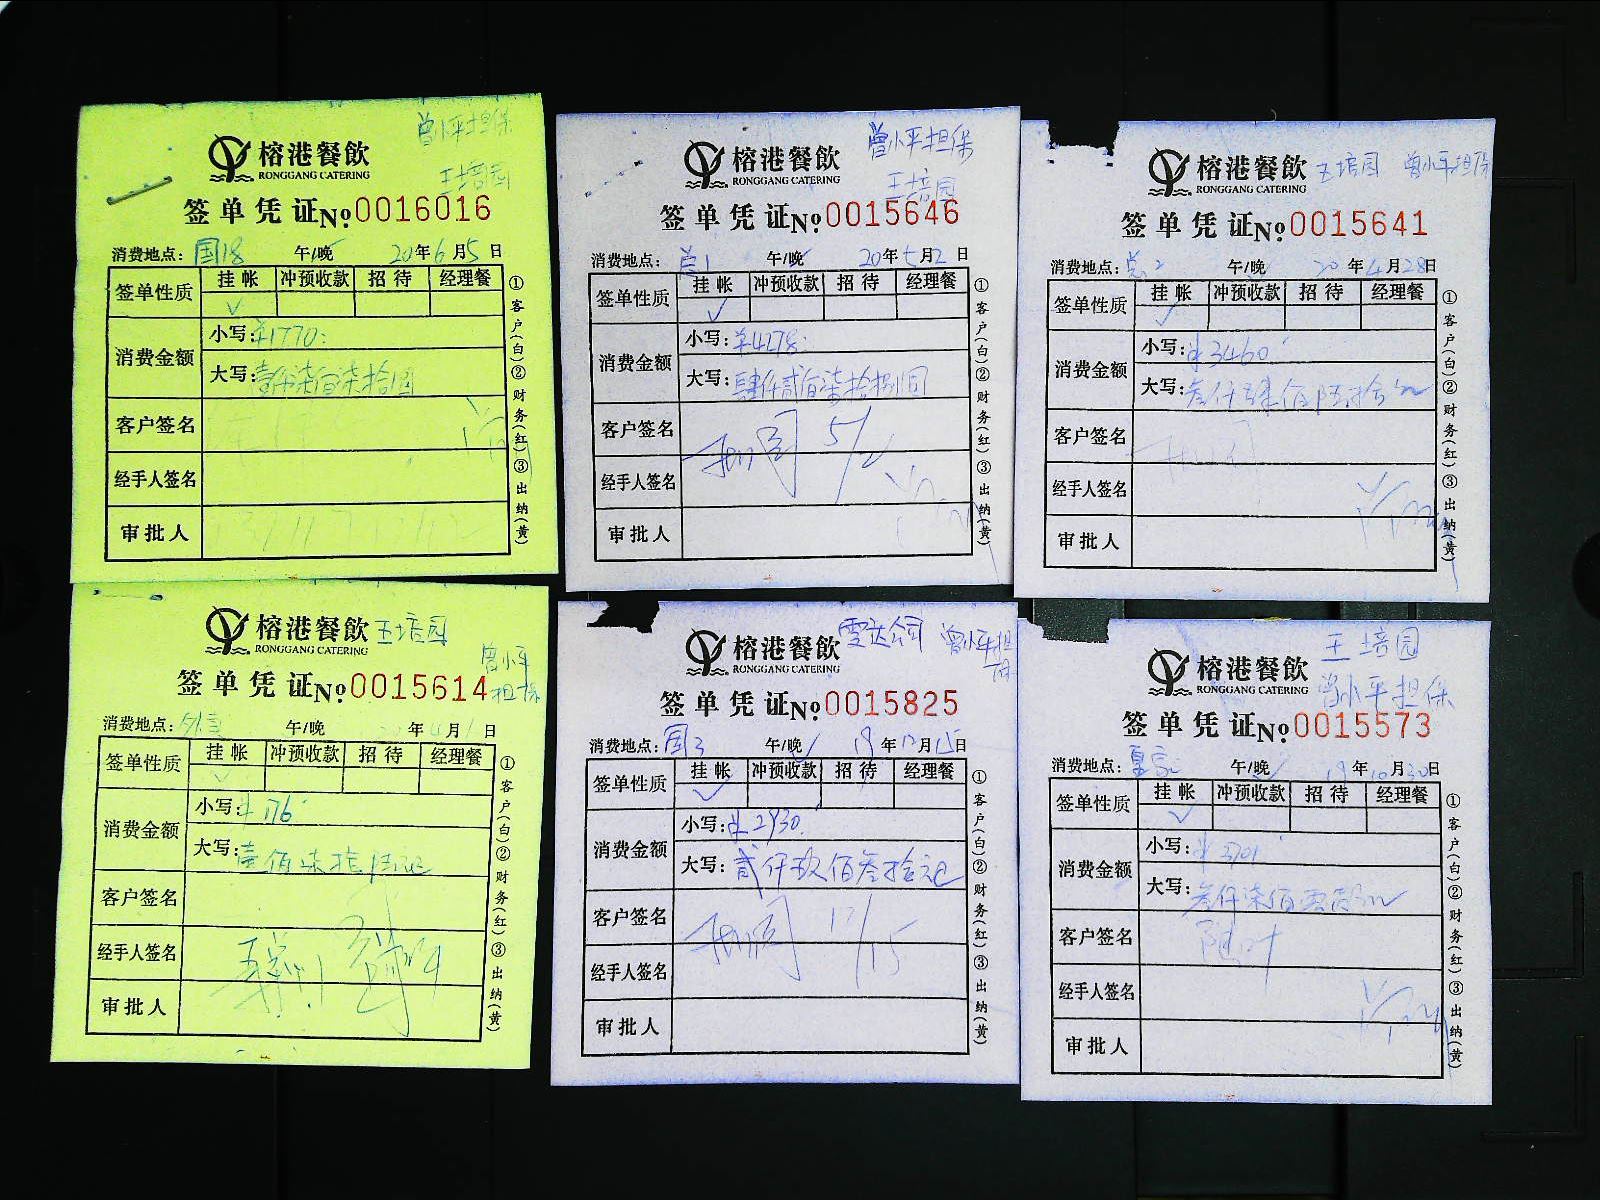 曾小平担保
榕港餐飲
RONGGANG CATERING
王培园
签单凭证 No 0016016
消费地点：国18 午/晚 20年6月5日
签单性质 挂帐 冲预收款 招待 经理餐
✓
消费金额 小写：¥1770.
大写：壹仟柒佰柒拾圆
客户签名
经手人签名
审批人
①客户(白)②财务(红)③出纳(黄)
曾小平担保
榕港餐飲
RONGGANG CATERING
王培园
签单凭证 No 0015646
消费地点：总1 午/晚 20年5月2日
签单性质 挂帐 冲预收款 招待 经理餐
✓
消费金额 小写：¥4278.
大写：肆仟贰佰柒拾捌圆
客户签名 5/2
经手人签名
审批人
①客户(白)②财务(红)③出纳(黄)
榕港餐飲 王培园 曾小平担保
RONGGANG CATERING
签单凭证 No 0015641
消费地点：总2 午/晚 20年4月28日
签单性质 挂帐 冲预收款 招待 经理餐
✓
消费金额 小写：¥3460
大写：叁仟肆佰陆拾元
客户签名
经手人签名
审批人
①客户(白)②财务(红)③出纳(黄)
榕港餐飲 王培园
RONGGANG CATERING
曾小平担保
签单凭证 No 0015614
消费地点： 午/晚 20年4月1日
签单性质 挂帐 冲预收款 招待 经理餐
✓
消费金额 小写：¥176
大写：壹佰柒拾陆元
客户签名
经手人签名
审批人
①客户(白)②财务(红)③出纳(黄)
榕港餐飲 雷达公司 曾小平担保
RONGGANG CATERING
签单凭证 No 0015825
消费地点：国3 午/晚 19年12月15日
签单性质 挂帐 冲预收款 招待 经理餐
✓
消费金额 小写：¥2930.
大写：贰仟玖佰叁拾元
客户签名 12/15
经手人签名
审批人
①客户(白)②财务(红)③出纳(黄)
王培园
榕港餐飲
RONGGANG CATERING
曾小平担保
签单凭证 No 0015573
消费地点： 午/晚 19年10月30日
签单性质 挂帐 冲预收款 招待 经理餐
✓
消费金额 小写：¥3701
大写：叁仟柒佰零壹元
客户签名
经手人签名
审批人
①客户(白)②财务(红)③出纳(黄)